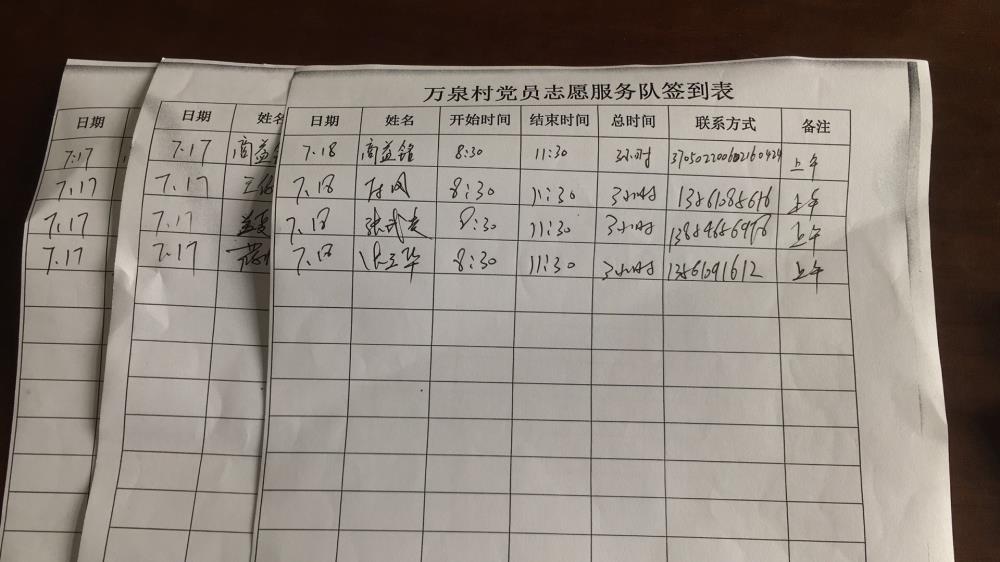 万泉村党员志愿服务队签到表
日期 姓名 开始时间 结束时间 总时间 联系方式 备注
7.18 高益铭 8:30 11:30 3小时 上午
7.18 8:30 11:30 3小时 上午
7.18 张武 8:30 11:30 3小时 上午
7.18 华 8:30 11:30 3小时 上午
日期 姓名
7.17 高益
7.17 王
7.17
7.17
日期
7.17
7.17
7.17
7.17